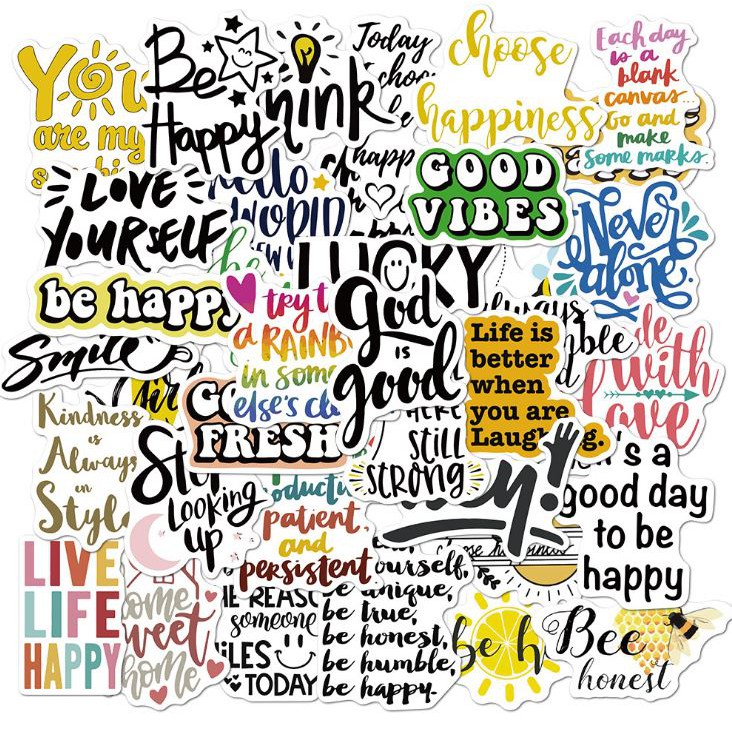 You
are my
Be
Happy
Today
choose
happiness
Each day
is a
blank
canvas...
Go and
make
some marks.
LOVE
YOURSELF
GOOD
VIBES
Never
alone.
be happy
LUCKY
God
is
good
try t
a RAINB
in som
else's cl
Life is
better
when
you are
Laughing.
always
with
Smile
FRESH
HERE
STILL
STRONG
Kindness
is
Always
in
Style
Looking
up
patient,
and
persistent
good day
to be
happy
LIVE
LIFE
HAPPY
sweet
home
someone
TODAY
be unique,
be true,
be honest,
be humble,
be happy.
be h
Bee
honest